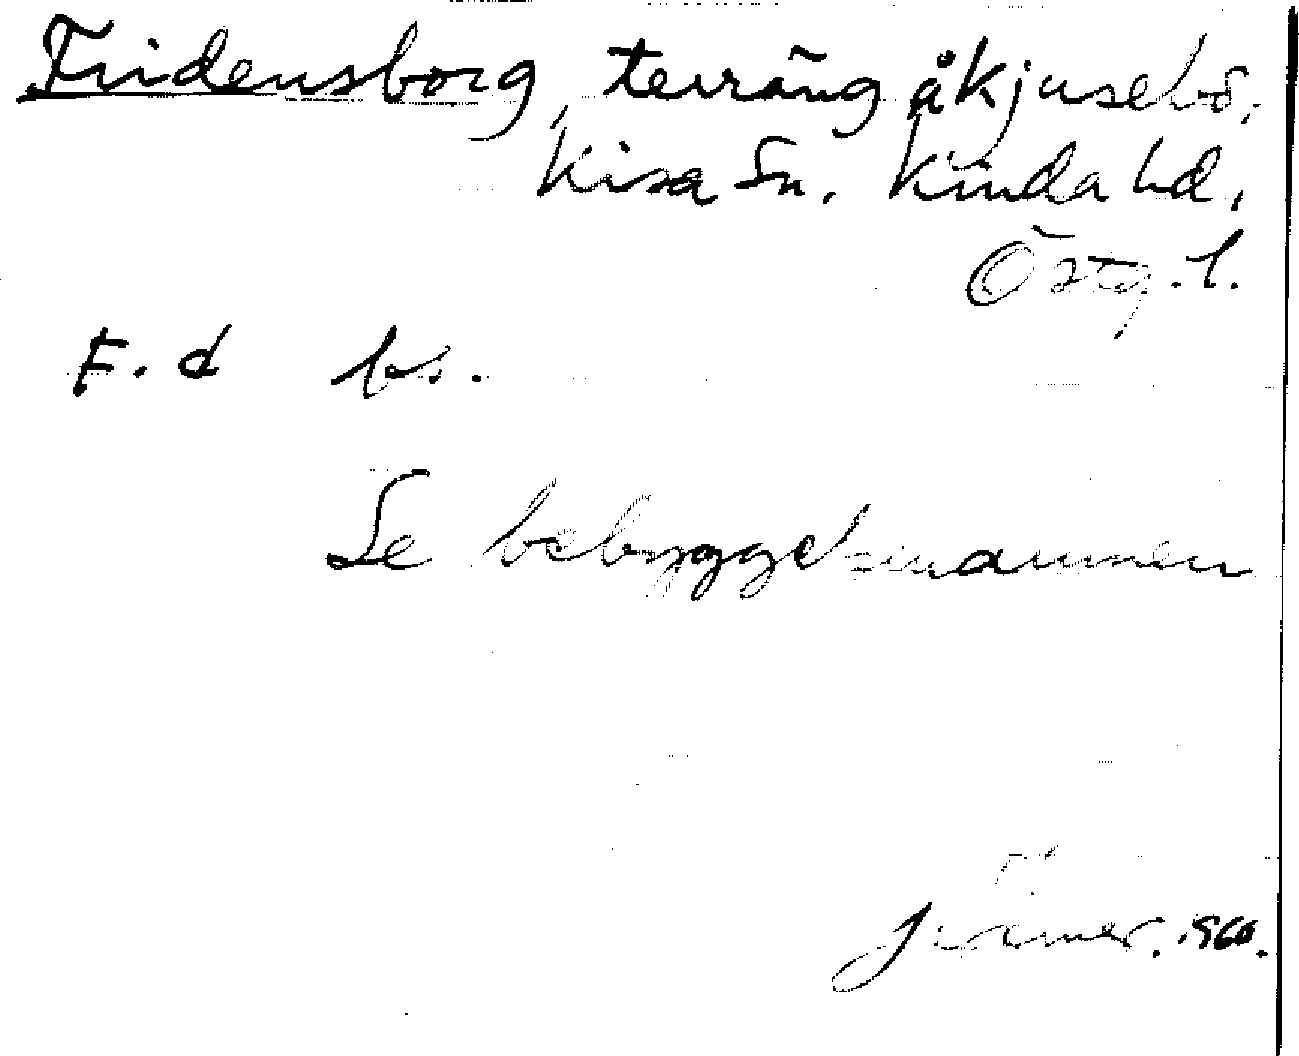 Fridensborg, terräng å Kjusebo,
Kisa Sn. Kinda hd,
Östg. l.
F. d bs.
Se bebyggelsenamnen
1960.